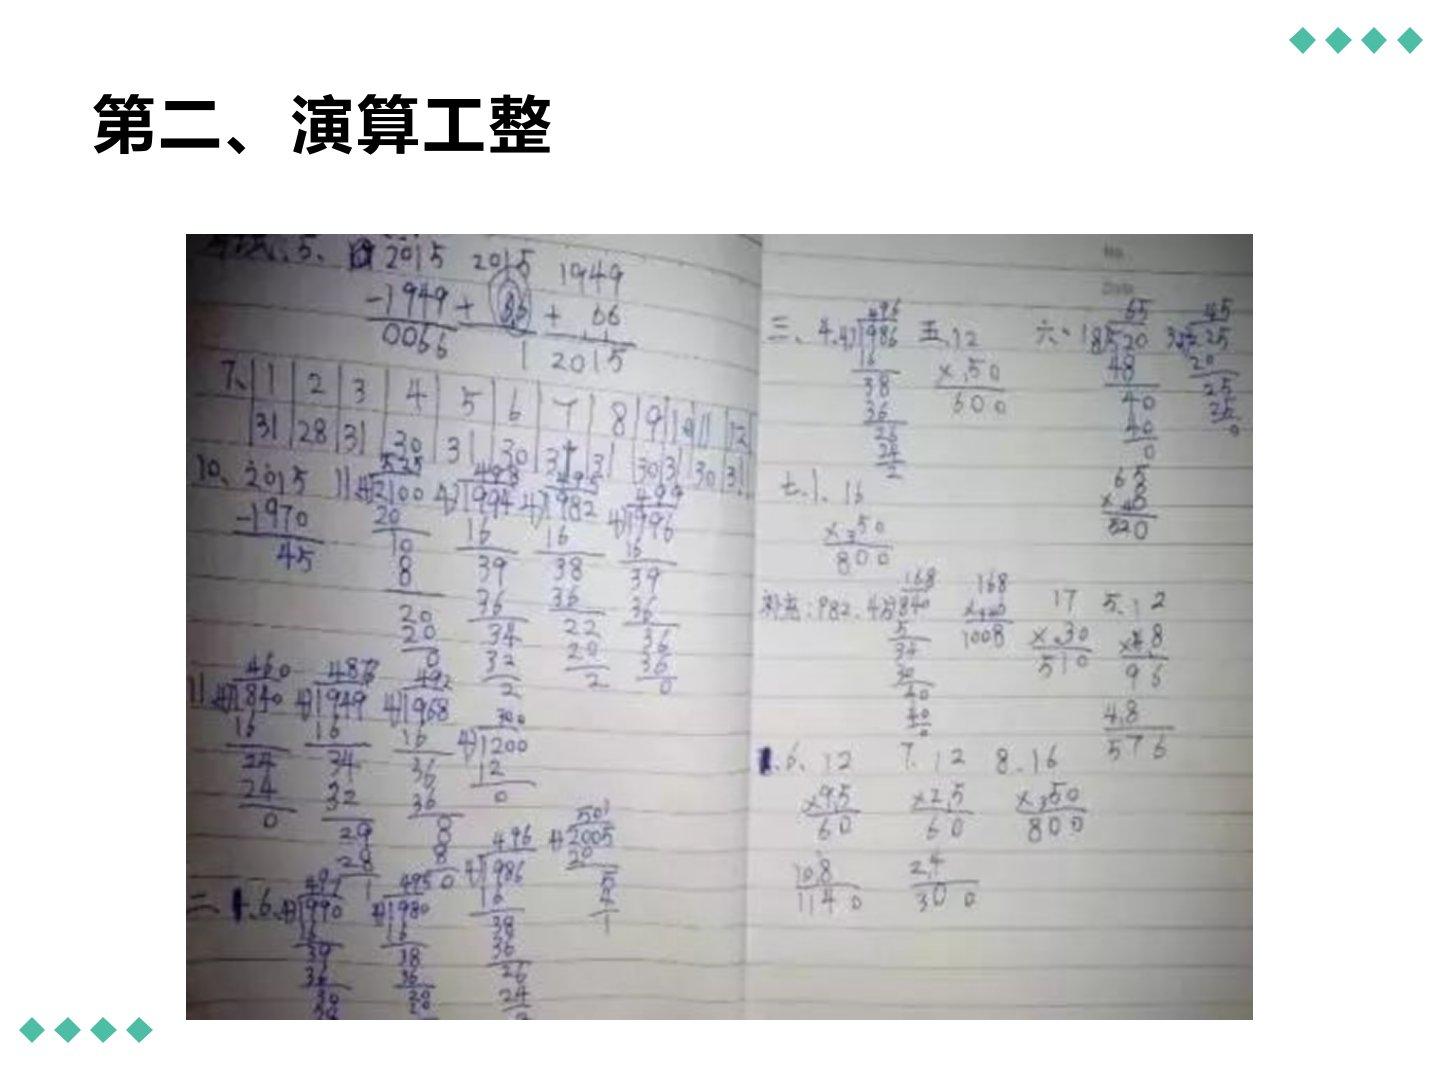 第二、演算工整
5、 2015 2015 1949
-1949 + 66 + 66
0066 1 2015
7、 1 2 3 4 5 6 7 8 9 10 11 12
31 28 31 30 31 30 31 31 30 31 30 31
10、 2015 11、 525 498 495 499
-1970 4)2100 4)1994 4)1982 4)1996
45 20 16 16 16
10 39 38 39
8 36 36 36
20 34 22 36
20 32 20 36
0 2 2 0
11 460 487 492 300
4)1840 4)1949 4)1968 4)1200
16 16 16 12
24 34 36 0
24 32 36
0 29 8
28 8
1 0
二 1.6. 497 495 496 501
4)1990 4)1980 4)1986 4)2005
16 16 16 20
39 38 38 5
36 36 36 4
30 20 26 1
24
三、4. 496 五、12 六、 65 45
4)1986 × 50 8)520 5)225
16 600 48 20
38 40 25
36 40
26 0 0
24
2
65
× 8
520
七.1. 16
× 50
800
补充:982. 4. 168 168 17 5. 12
5)840 1008 × 30 × 48
5 510 96
34 48
30 576
40
40
0
6、12 7. 12 8. 16
×95 ×25 × 50
60 60 800
108 24
1140 300